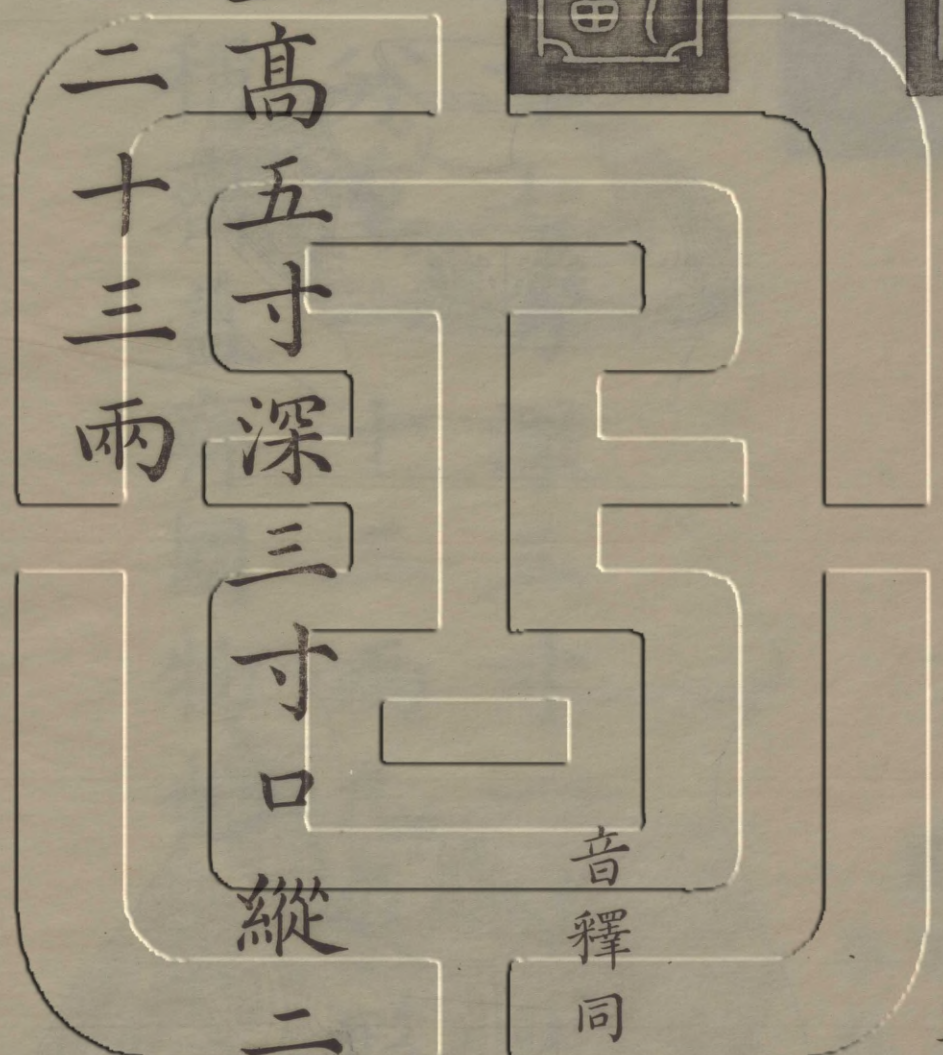 音釋同
高五寸深三寸口縱二
二十三兩